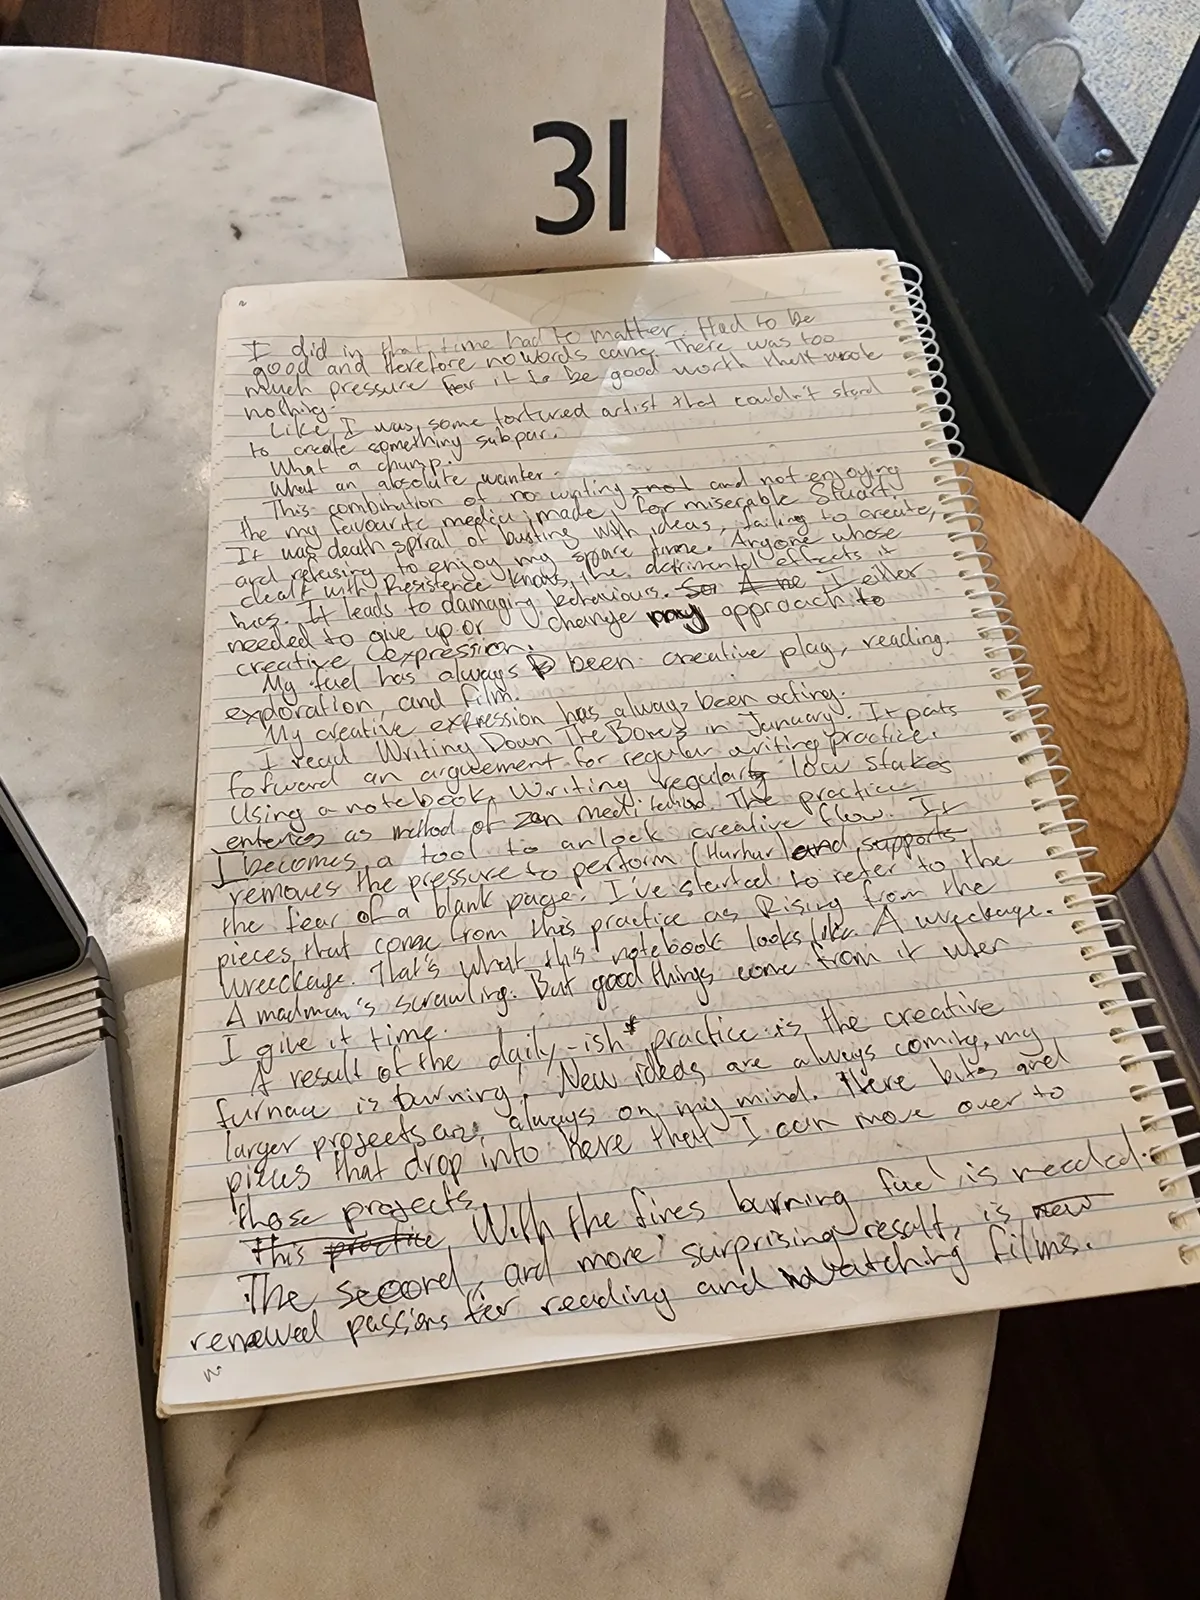 31
I did in that time had to matter. Had to be
good and therefore no words came. There was too
much pressure for it to be good worth that wrote
nothing.
Like I was some tortured artist that couldn't stand
to create something subpar.
What a chump.
What an absolute wanker.
This combination of no writing, not and not enjoying
the my favourite media, made for miserable Stuart.
It was death spiral of busting with ideas, failing to create,
and refusing to enjoy my spare time. Anyone whose
dealt with Resistence knows the detrimental effects it
has. It leads to damaging behaviours. So A ne I either
needed to give up or change my approach to
creative expression.
My fuel has always been creative play, reading.
exploration, and film.
My creative expression has always been acting.
I read Writing Down The Bones in January. It puts
forward an arguement for regular writing practice.
Using a notebook. Writing regular low stakes
enteries as method of zen meditation. The practice
becomes a tool to unlock creative flow. It
removes the pressure to perform (Hurhur) and supports
the fear of a blank page. I've started to refer to the
pieces that come from this practice as Rising from the
Wreckage. That's what this notebook looks like. A wreckage.
A madman's scrawling. But good things come from it when
I give it time.
A result of the daily-ish* practice is the creative
furnace is burning. New ideas are always coming, my
larger projects are always on my mind. There bits and
pieces that drop into here that I can move over to
those projects.
This practice With the fires burning fuel is needed.
The second, and more surprising result, is new
renewed passions for reading and watching films.